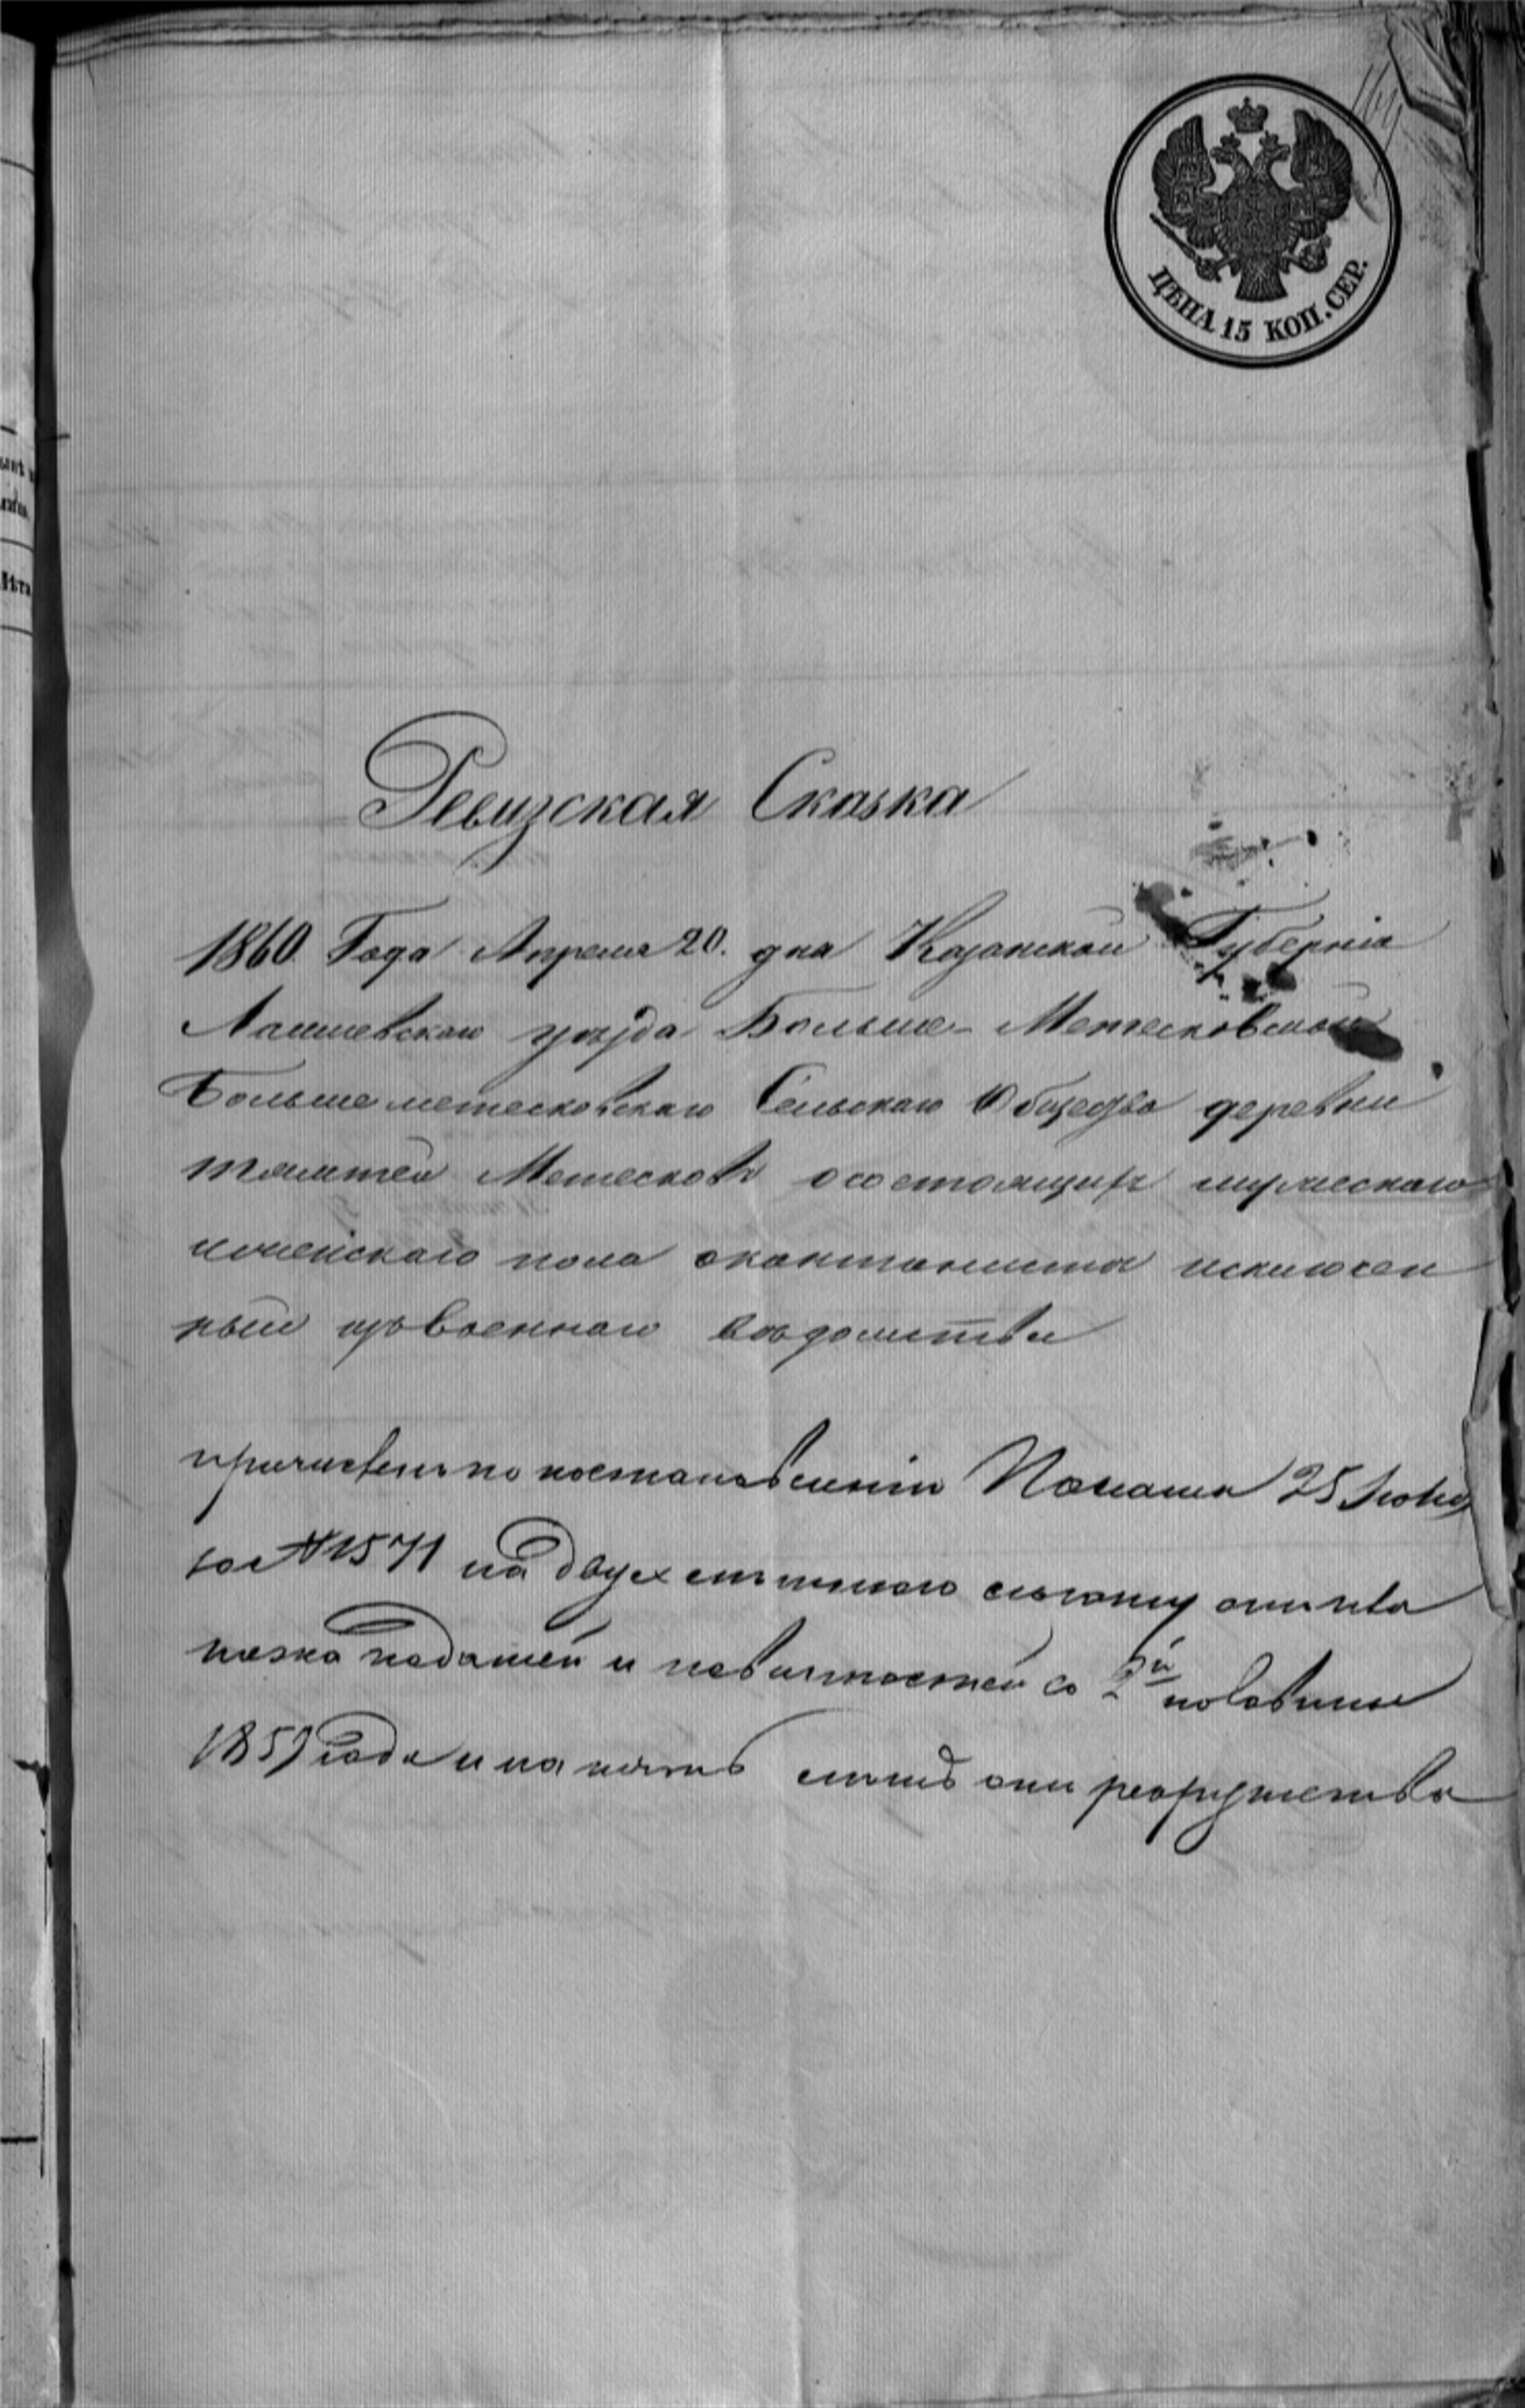 ЦѢНА 15 КОП. СЕР.
Ревизская Сказка
1860 Года Апреля 20. дня Казанской Губерніи
Лаишевскаго уѣзда Больше-Метесковской
Большеметесковскаго Сельскаго Общества деревни
Метесковъ о состоящихъ мужескаго
и женскаго пола исключен
ный изъ Военнаго вѣдомства
причислены по постановленію Палаты 25
за № 1571 на двухъ лѣтнюю льготу отъ пла
тежа податей и повинностей со 2й половины
1859 года и на лѣтъ отъ рекрутства